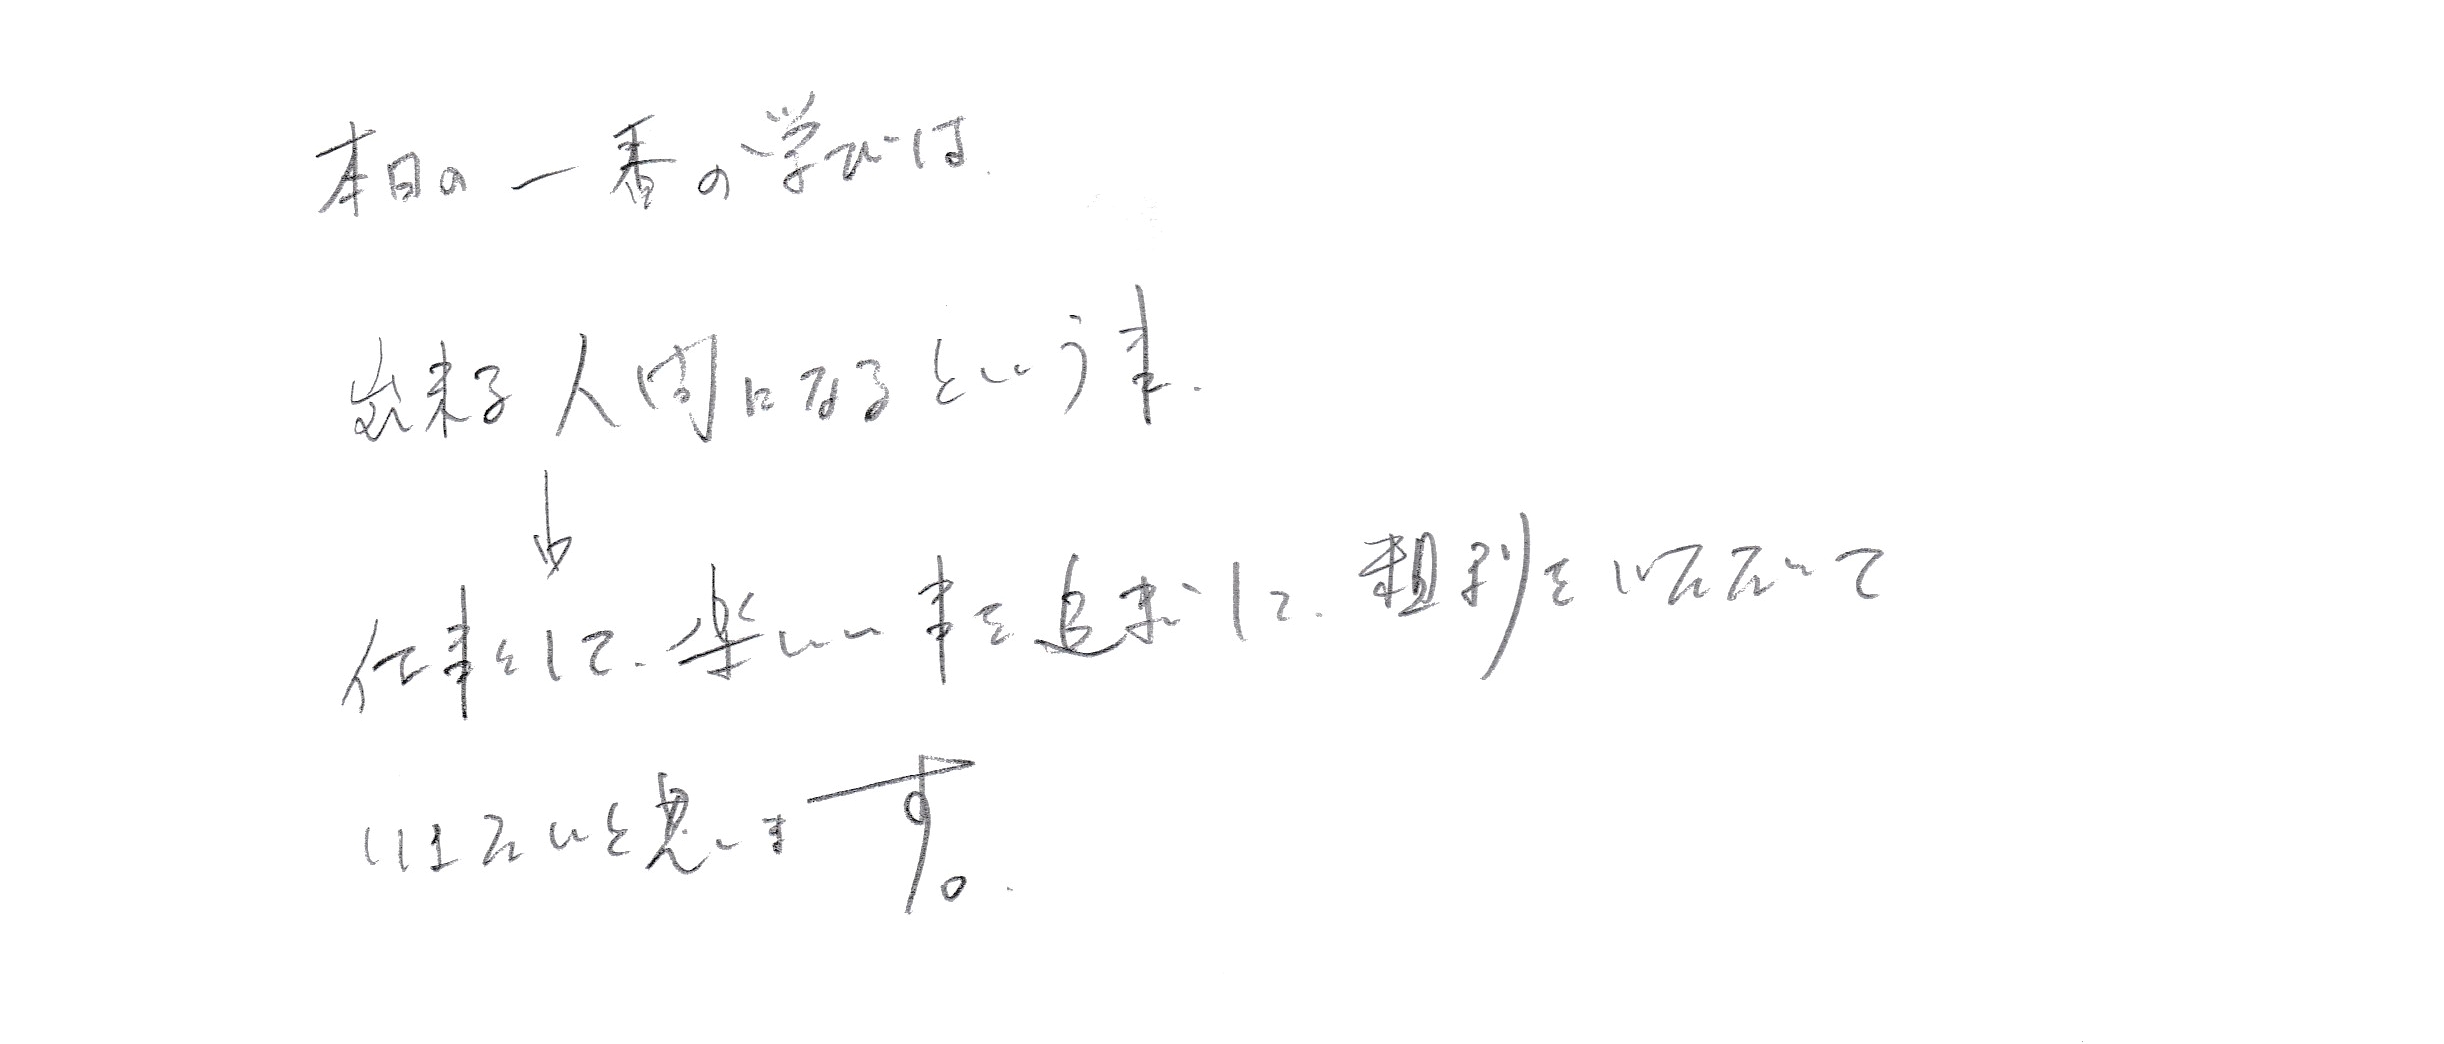 本日の一番の学びは
出来る人間になるという事.
↓
仕事をして、楽しい事を追求して、粗利をいただいて
いきたいと思います。